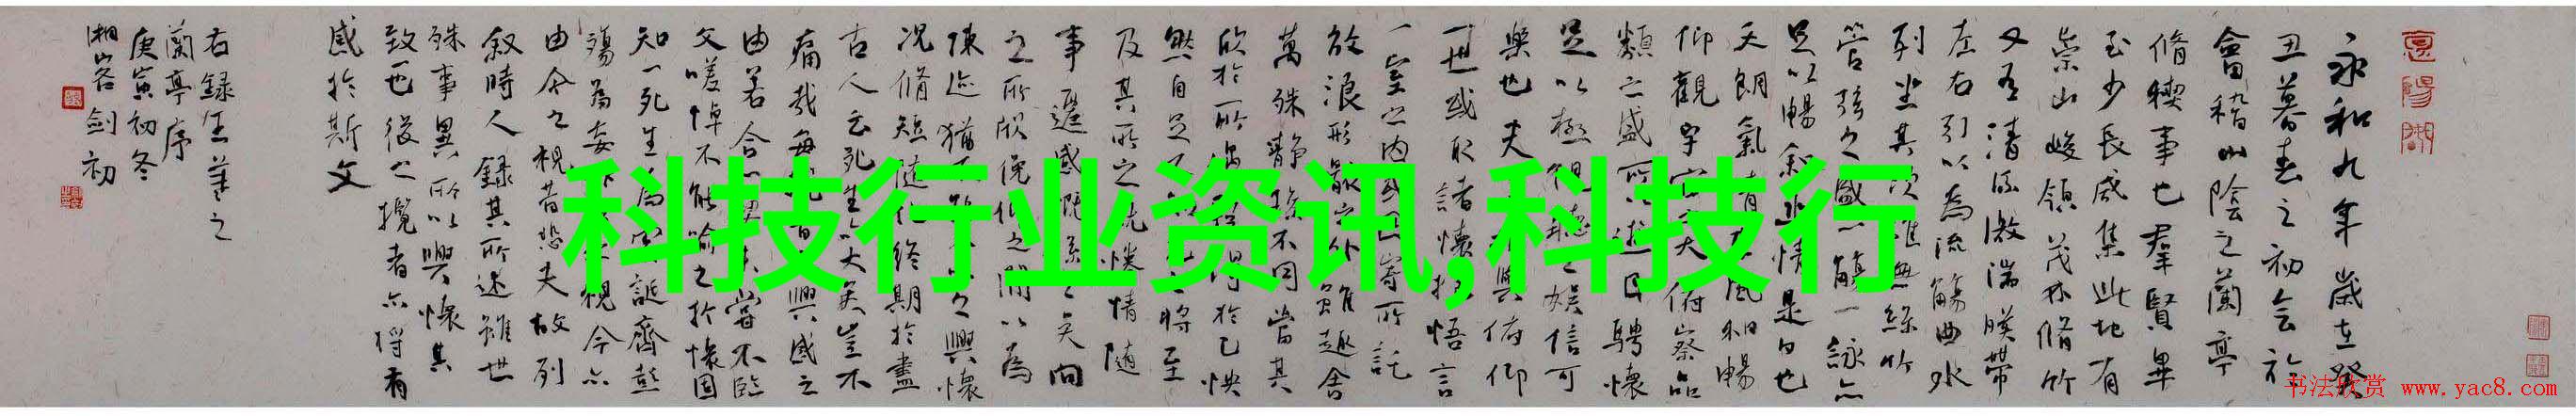 永和九年歲在癸
丑暮春之初会於
會稽山陰之蘭亭
脩稧事也羣賢畢
至少長咸集此地有
崇山峻領茂林脩竹
又有清流激湍暎帶
左右引以為流觴曲水
列坐其次雖無絲竹
管弦之盛一觴一詠亦
足以暢叙幽情是日也
天朗氣清風和暢
仰觀宇宙大俯察品
類之盛所以遊目騁懷
足以極視聽之娛信可
樂也夫與俯仰
一世或取諸懷抱悟言
一室之内或因寄所託
放浪形骸之外雖趣舍
萬殊靜躁不同當其
欣於所遇暫得於己怏
然自足不之將至
及其所之既惓情隨
事遷感慨係之矣向
之所欣俛仰之間以為
陳迹猶不之興懷
况脩短隨化終期於盡
古人云死生亦大矣豈不
痛哉每攬昔興感之
由若合一契未嘗不臨
文嗟悼不能喻之於懷固
知一死生為虛誕齊彭
殤為妄視今亦
由今之視昔悲夫故列
叙時人録其所述雖世
殊事異所以興懷其
致一也後之攬者亦將有
感於斯文
右録王羲之
蘭亭序
庚寅初冬
湘客剑初
科技行业资讯,科技行
书法欣赏 www.yac8.com